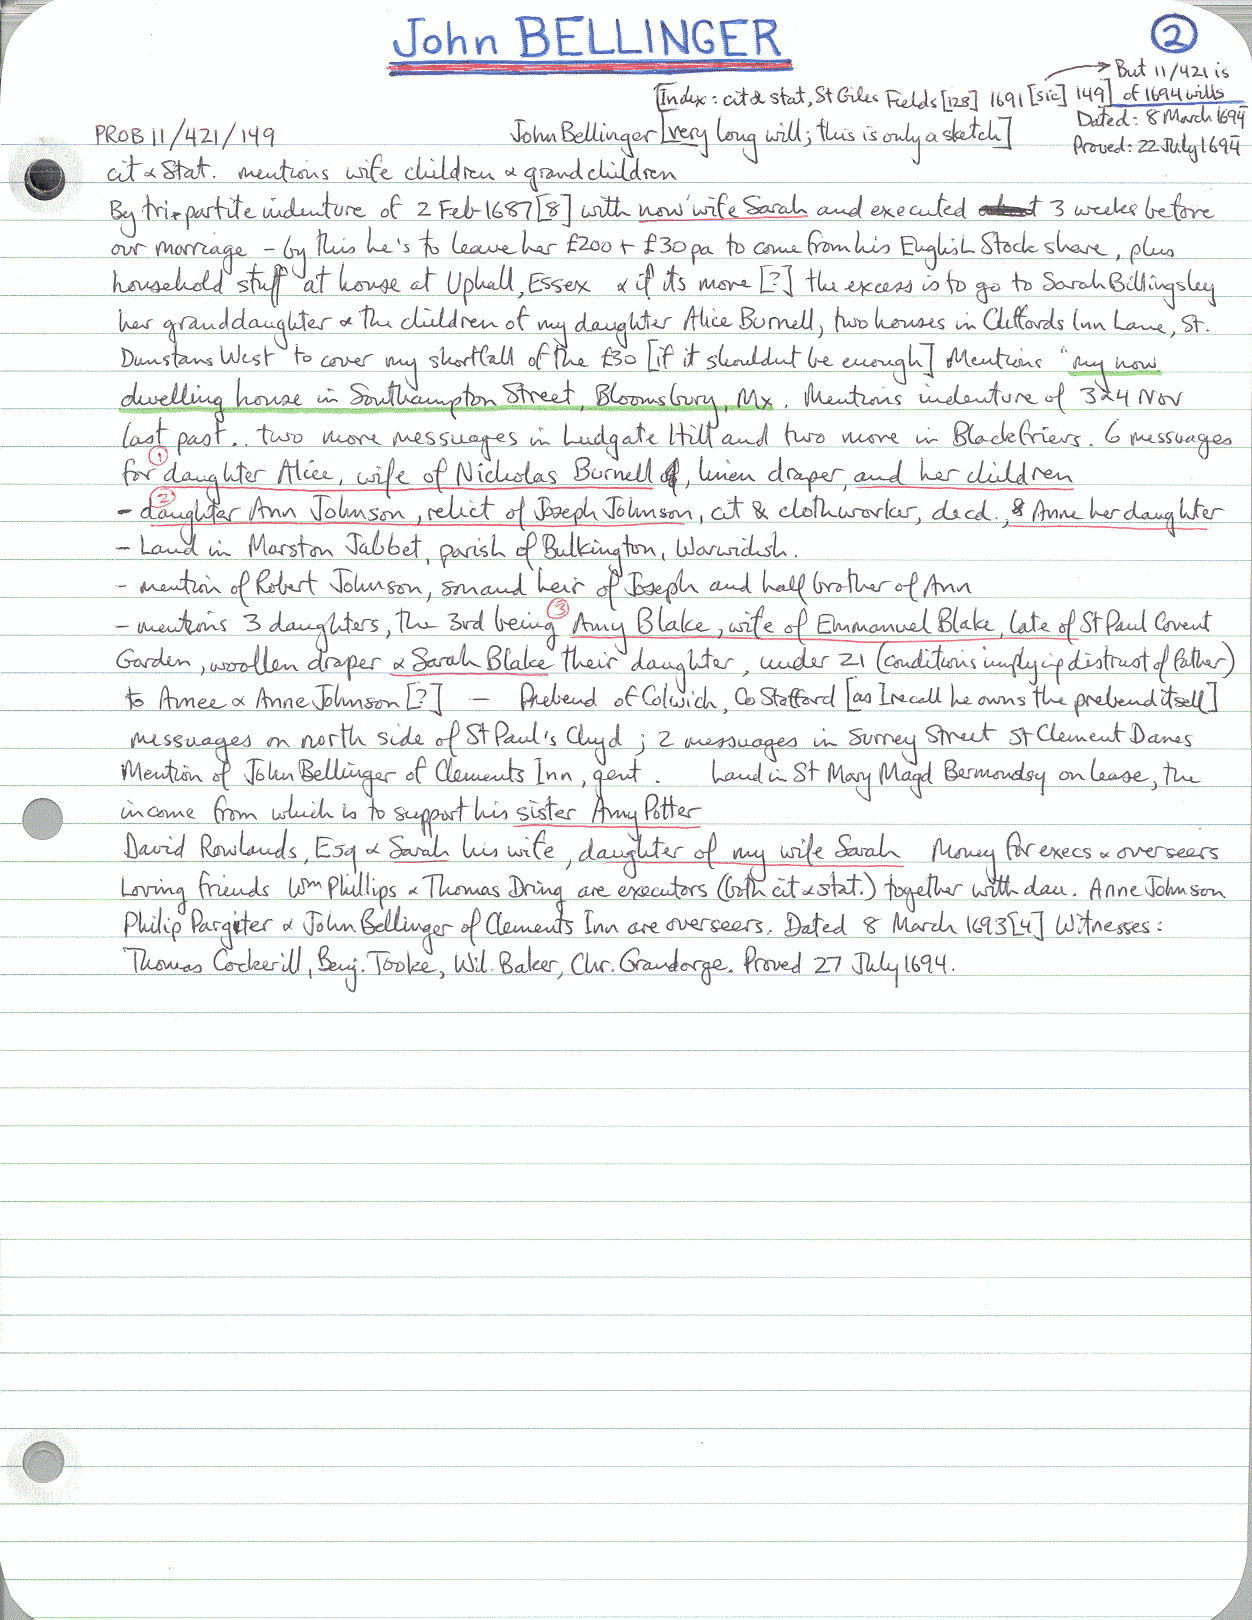 John BELLINGER
2
But 11/421 is
[Index: cit & stat, St Giles Fields [128] 1691 [sic] 149] of 1694 wills
Dated: 8 March 1694
PROB 11/421/149 John Bellinger [very long will; this is only a sketch]
Proved: 22 July 1694
cit & Stat. mentions wife children & grandchildren
By tri-partite indenture of 2 Feb 1687[8] with 'now' wife Sarah and executed 3 weeks before
our marriage – by this he's to leave her £200 + £30 pa to come from his English Stock share, plus
household stuff at house at Uphall, Essex & if its more [?] the excess is to go to Sarah Billingsley
her granddaughter & the children of my daughter Alice Burnell, two houses in Cliffords Inn Lane, St.
Dunstans West to cover my shortfall of the £30 [if it shouldnt be enough] Mentions "my now
dwelling house in Southampton Street, Bloomsbury, Mx. Mentions indenture of 3 & 4 Nov
last past.. two more messuages in Ludgate Hill and two more in Blackfriers. 6 messuages
for ① daughter Alice, wife of Nicholas Burnell, linen draper, and her children
- ② daughter Ann Johnson, relict of Joseph Johnson, cit & clothworker, decd., & Anne her daughter
- Land in Marston Jabbet, parish of Bulkington, Warwicksh.
- mention of Robert Johnson, son and heir of Joseph and half brother of Ann
- mentions 3 daughters, the 3rd being ③ Amy Blake, wife of Emmanuel Blake, late of St Paul Covent
Garden, woollen draper & Sarah Blake their daughter, under 21 (conditions implying distrust of father)
to Amee & Anne Johnson [?] – Prebend of Colwich, Co Stafford [as I recall he owns the prebend itself]
messuages on north side of St Paul's Chyd; 2 messuages in Surrey Street St Clement Danes
Mention of John Bellinger of Clements Inn, gent. Land in St Mary Magd Bermondsy on lease, the
income from which is to support his sister Amy Potter
David Rowlands, Esq & Sarah his wife, daughter of my wife Sarah Money for execs & overseers
Loving friends Wm Phillips & Thomas Dring are executors (both cit & stat.) together with dau. Anne Johnson
Philip Pargiter & John Bellinger of Clements Inn are overseers. Dated 8 March 1693[4] Witnesses:
Thomas Cockerill, Benj. Tooke, Wil. Baker, Chr. Grandorge. Proved 27 July 1694.